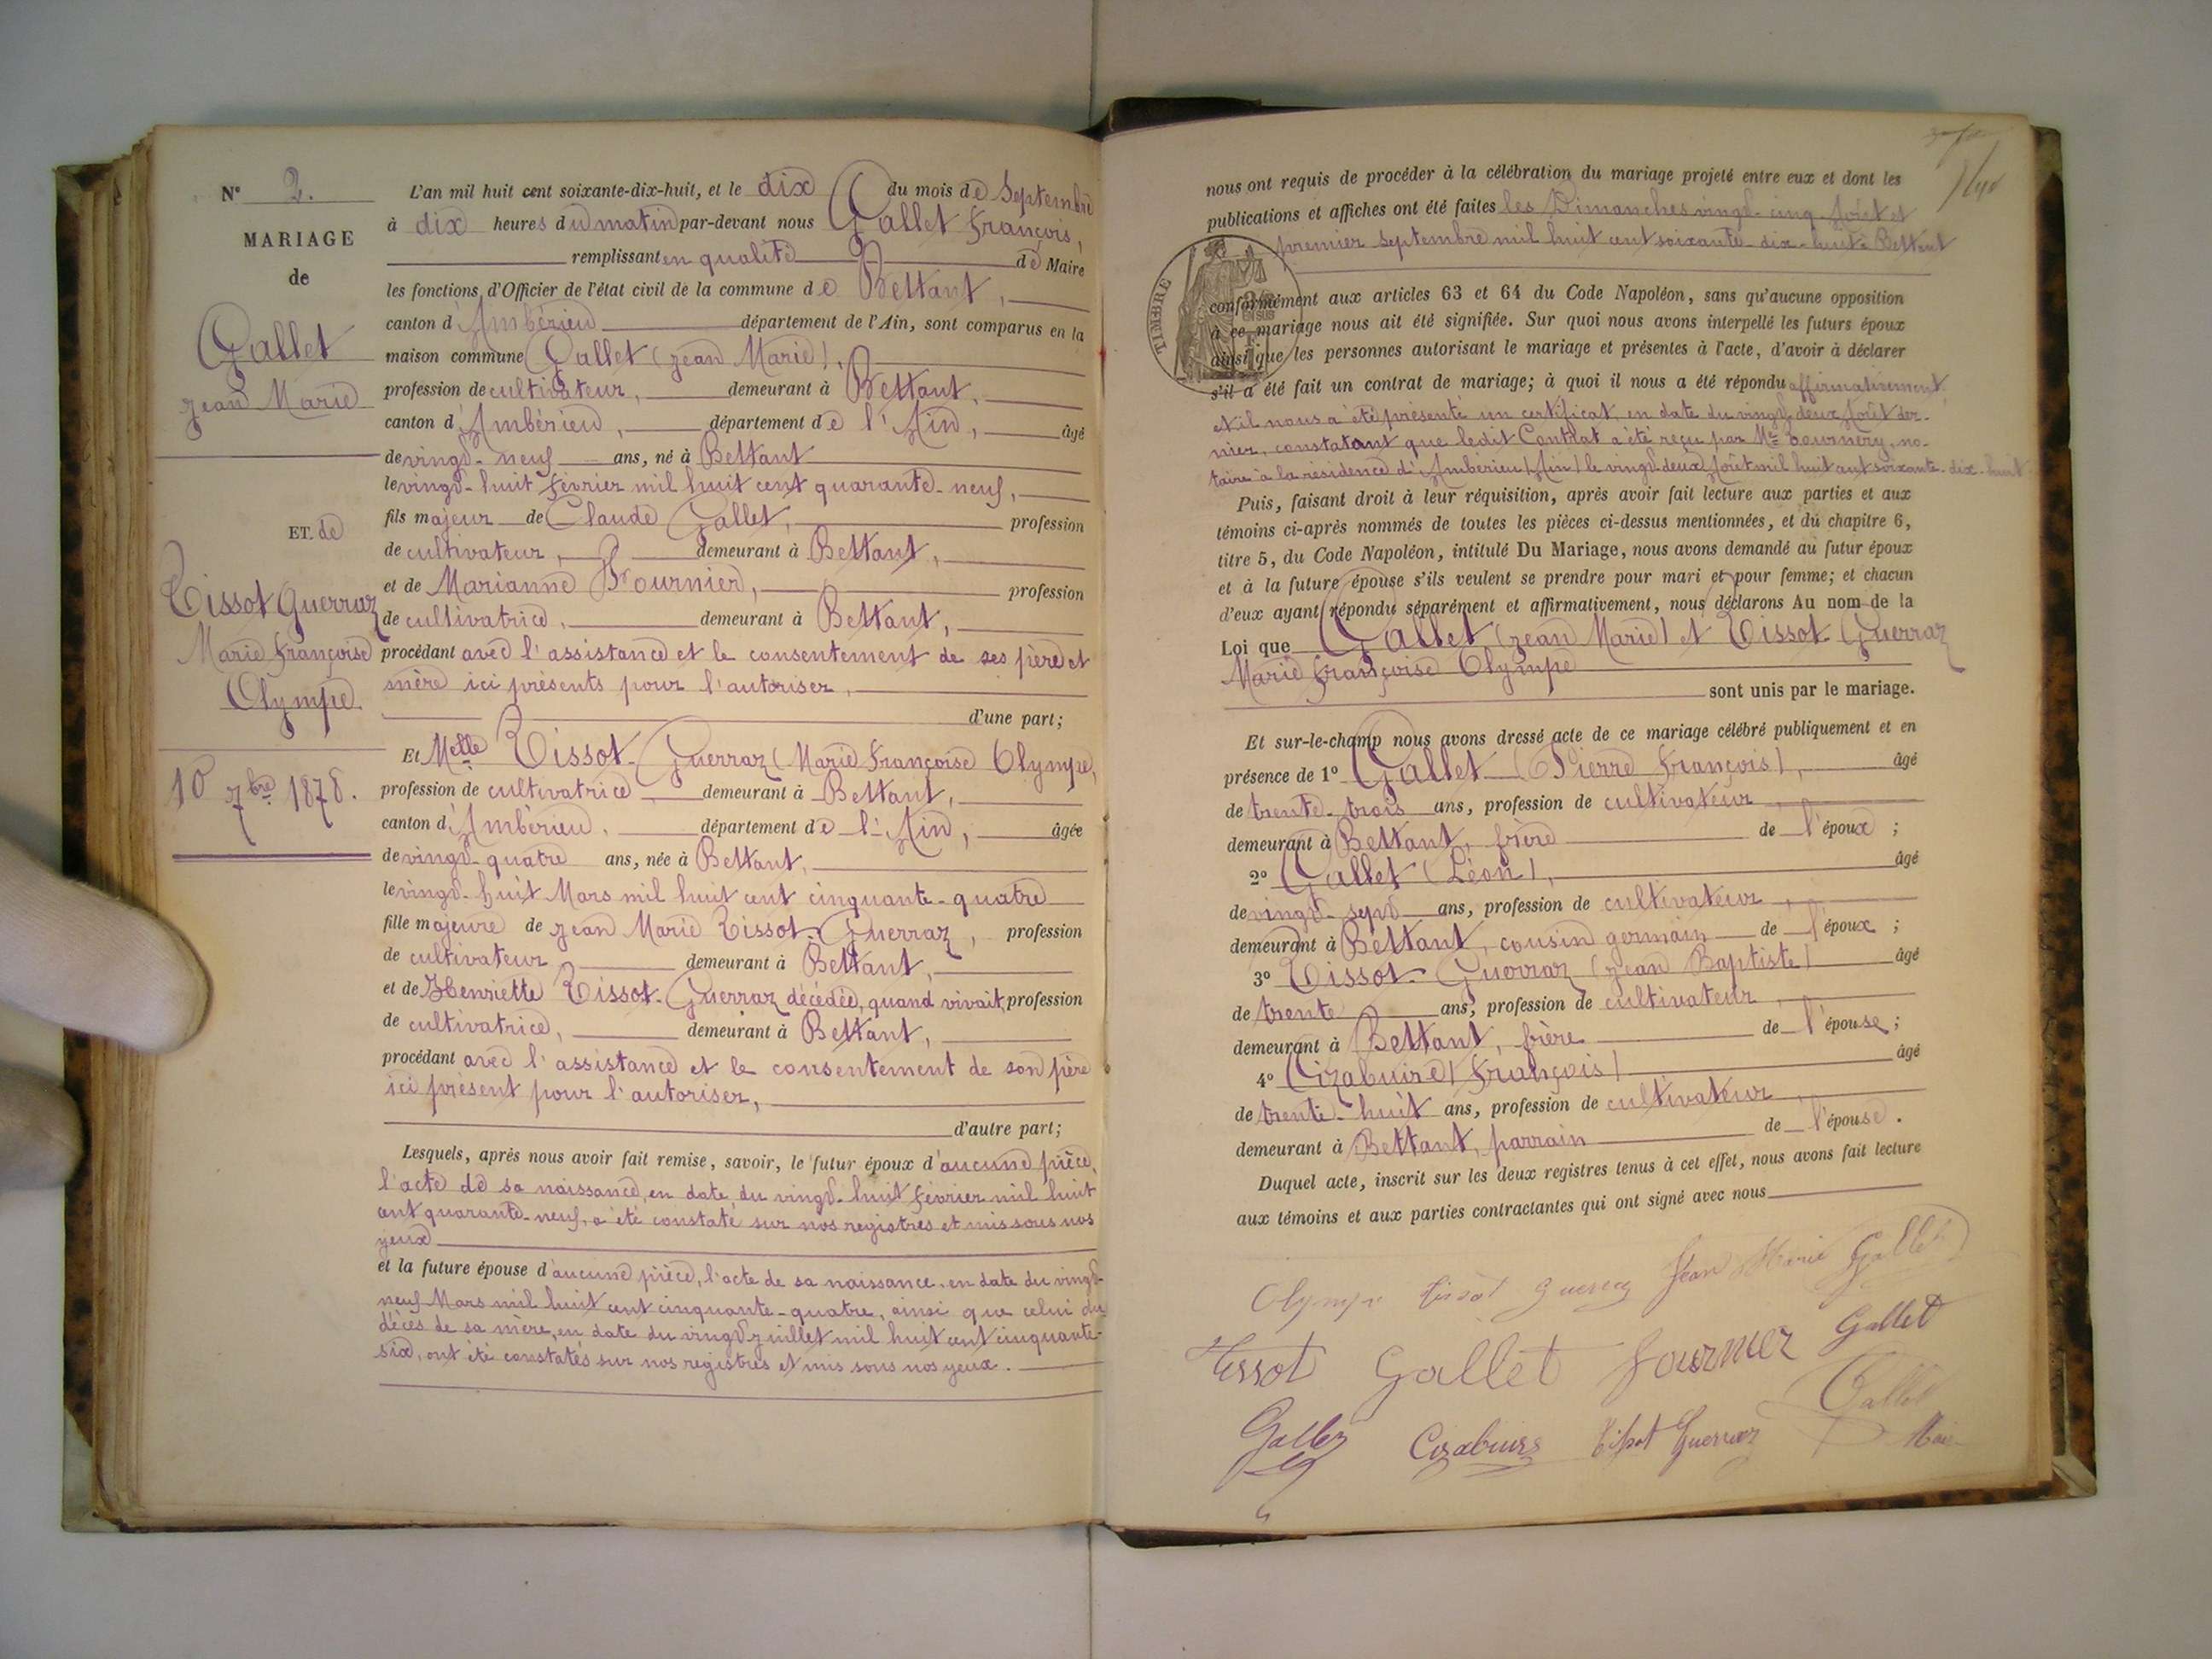 N° 2.
MARIAGE
de
Gallet
Jean Marie
ET. de
Tissot Guerraz
Marie Françoise
Olympe.
10 7bre 1878.
L'an mil huit cent soixante-dix-huit, et le dix du mois de Septembre
à dix heures du matin par-devant nous Gallet François,
remplissant en qualité de Maire
les fonctions d'Officier de l'état civil de la commune de Bettant,
canton d'Ambérieu département de l'Ain, sont comparus en la
maison commune Gallet (Jean Marie),
profession de cultivateur, demeurant à Bettant,
canton d'Ambérieu, département de l'Ain, âgé
de vingt-neuf ans, né à Bettant
le vingt-huit Février mil huit cent quarante-neuf,
fils majeur de Claude Gallet, profession
de cultivateur, demeurant à Bettant,
et de Marianne Fournier, profession
de cultivatrice, demeurant à Bettant,
procédant avec l'assistance et le consentement de ses père et
mère ici présents pour l'autoriser,
d'une part;
Et Melle Tissot-Guerraz (Marie Françoise Olympe,
profession de cultivatrice demeurant à Bettant,
canton d'Ambérieu, département de l'Ain, âgée
de vingt-quatre ans, née à Bettant,
le vingt-huit Mars mil huit cent cinquante-quatre
fille majeure de Jean Marie Tissot-Guerraz, profession
de cultivateur, demeurant à Bettant,
et de Henriette Tissot-Guerraz décédée, quand vivait, profession
de cultivatrice, demeurant à Bettant,
procédant avec l'assistance et le consentement de son père
ici présent pour l'autoriser,
d'autre part;
Lesquels, après nous avoir fait remise, savoir, le futur époux d'aucune pièce,
l'acte de sa naissance, en date du vingt-huit Février mil huit
cent quarante-neuf, a été constaté sur nos registres et mis sous nos
yeux
et la future épouse d'aucune pièce, l'acte de sa naissance, en date du vingt-
neuf Mars mil huit cent cinquante-quatre, ainsi que celui du
décès de sa mère, en date du vingt Juillet mil huit cent cinquante-
six, ont été constatés sur nos registres et mis sous nos yeux.
nous ont requis de procéder à la célébration du mariage projeté entre eux et dont les
publications et affiches ont été faites les Dimanches vingt-cinq Août et
premier Septembre mil huit cent soixante-dix-huit à Bettant
TIMBRE
conformément aux articles 63 et 64 du Code Napoléon, sans qu'aucune opposition
à ce mariage nous ait été signifiée. Sur quoi nous avons interpellé les futurs époux
ainsi que les personnes autorisant le mariage et présentes à l'acte, d'avoir à déclarer
s'il a été fait un contrat de mariage; à quoi il nous a été répondu affirmativement,
et il nous a été présenté un certificat, en date du vingt-deux Août der-
nier, constatant que ledit Contrat a été reçu par Me Tournery, no-
taire à la résidence d'Ambérieu (Ain) le vingt-deux Août mil huit cent soixante-dix-huit
Puis, faisant droit à leur réquisition, après avoir fait lecture aux parties et aux
témoins ci-après nommés de toutes les pièces ci-dessus mentionnées, et du chapitre 6,
titre 5, du Code Napoléon, intitulé Du Mariage, nous avons demandé au futur époux
et à la future épouse s'ils veulent se prendre pour mari et pour femme; et chacun
d'eux ayant répondu séparément et affirmativement, nous déclarons Au nom de la
Loi que Gallet (Jean Marie) et Tissot-Guerraz
Marie Françoise Olympe
sont unis par le mariage.
Et sur-le-champ nous avons dressé acte de ce mariage célébré publiquement et en
présence de 1° Gallet (Pierre François), âgé
de trente-trois ans, profession de cultivateur,
demeurant à Bettant, frère de l'époux;
2° Gallet (Léon), âgé
de vingt-sept ans, profession de cultivateur,
demeurant à Bettant, cousin germain de l'époux;
3° Tissot-Guerraz (Jean Baptiste) âgé
de trente ans, profession de cultivateur,
demeurant à Bettant, frère de l'épouse;
4° Cizabuire (François) âgé
de trente-huit ans, profession de cultivateur,
demeurant à Bettant, parrain de l'épouse.
Duquel acte, inscrit sur les deux registres tenus à cet effet, nous avons fait lecture
aux témoins et aux parties contractantes qui ont signé avec nous
Olympe tissot guerraz Jean Marie Gallet
tissot Gallet fournier Gallet
Gallet Cizabuire Tissot Guerraz Gallet